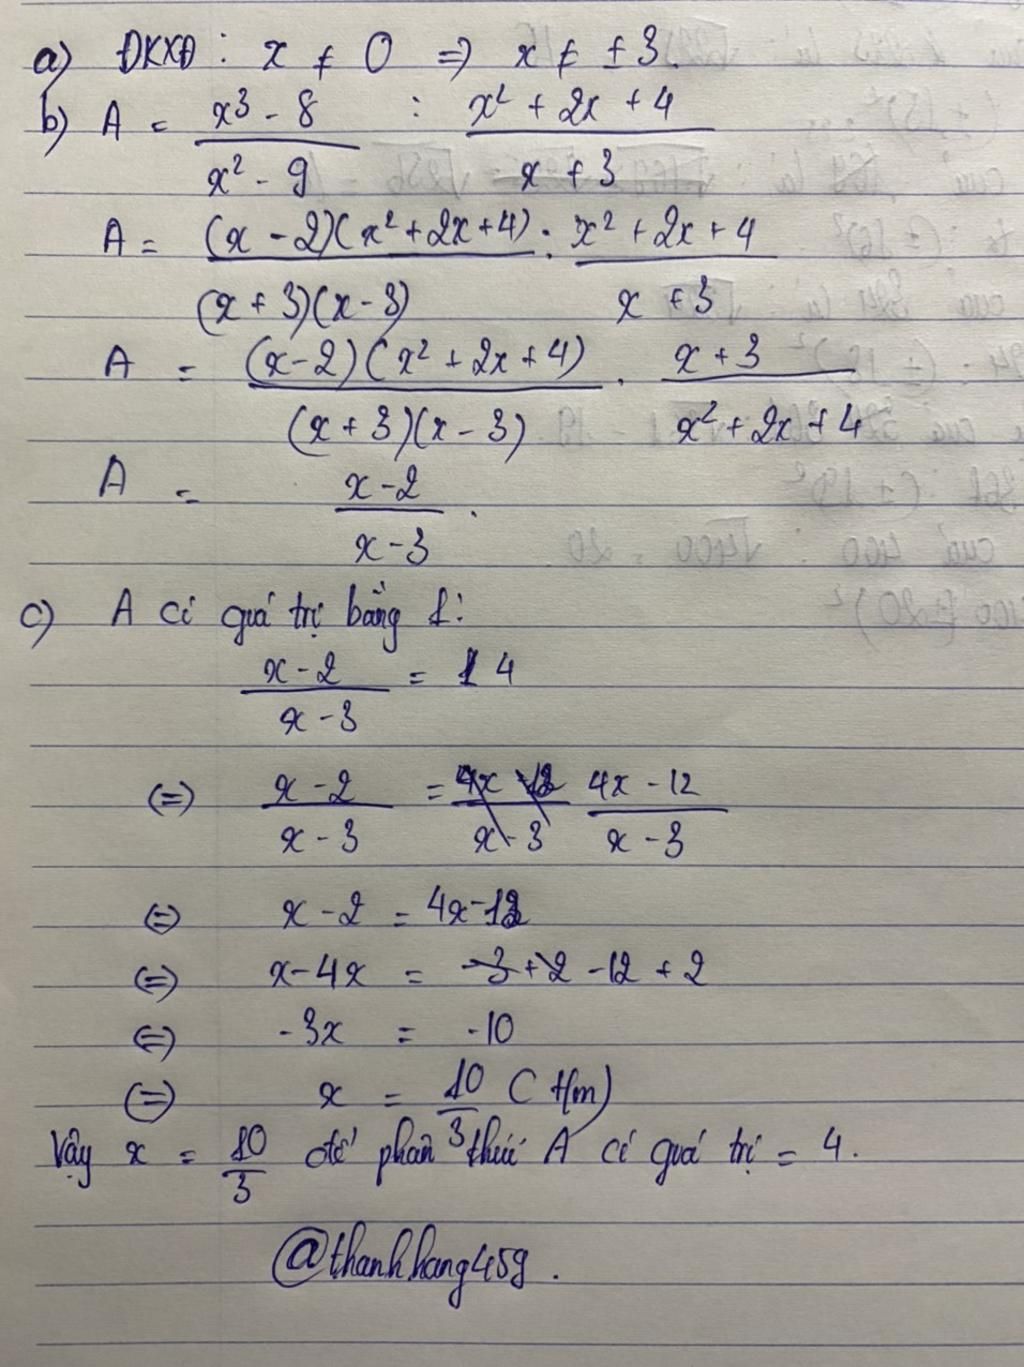 a) ĐKXĐ : x ≠ 0 => x ≠ ±3.
b) A = x³ - 8 / x² - 9 : x² + 2x + 4 / x + 3
A = (x - 2)(x² + 2x + 4) / (x + 3)(x - 3) : x² + 2x + 4 / x + 3
A = (x - 2)(x² + 2x + 4) / (x + 3)(x - 3) . x + 3 / x² + 2x + 4
A = x - 2 / x - 3 .
c) A có giá trị bằng 1:
x - 2 / x - 3 = 4
(=) x - 2 / x - 3 = 4x - 12 / x - 3
(=) x - 2 = 4x - 12
(=) x - 4x = -12 + 2
(=) -3x = -10
(=) x = 10 / 3 (t/m)
Vậy x = 10 / 3 để phân thức A có giá trị = 4.
@thanhhang459.